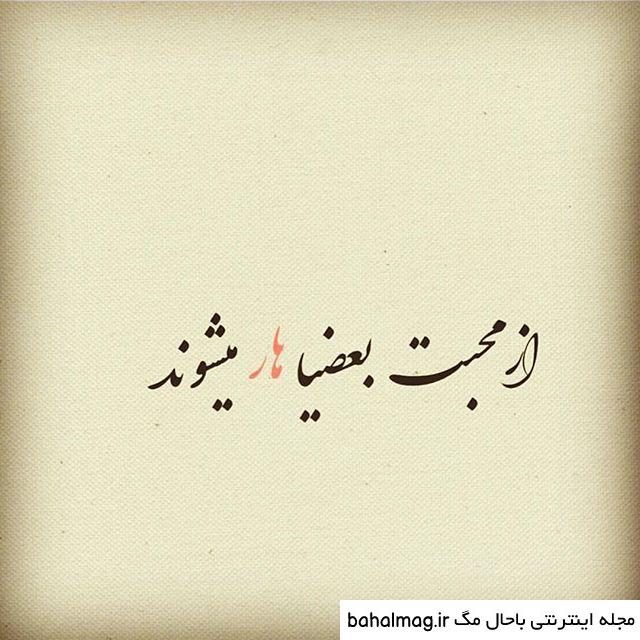 از محبت بعضیا هار میشوند
مجله اینترنتی باحال مگ bahalmag.ir